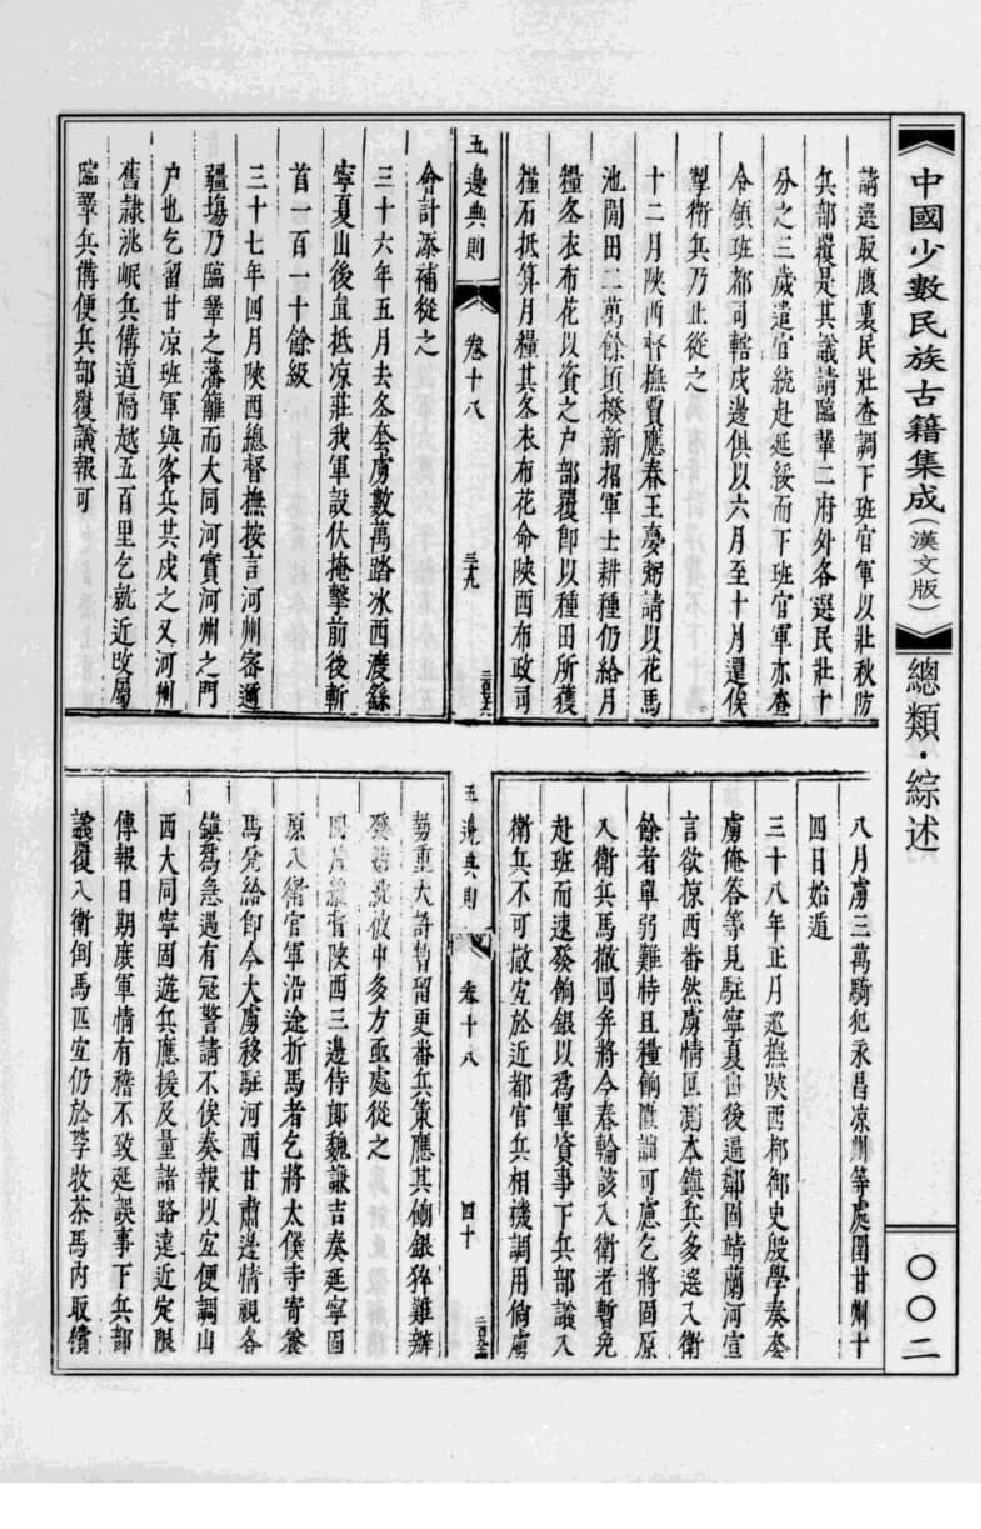 中國少數民族古籍集成（漢文版）
總類·綜述
〇〇二
請選取腹裏民壯查調下班官軍以壯秋防
兵部覆是其議請臨鞏二府外各選民壯十
分之三歲遣官統赴延綏而下班官軍亦查
令領班都司轄戍邊俱以六月至十月還俟
掣衛兵乃止從之
十二月陝西督撫賈應春王夢弼請以花馬
池閒田二萬餘頃撥新招軍士耕種仍給月
糧冬衣布花以資之户部覆卽以種田所獲
糧石抵算月糧其冬衣布花命陝西布政司
五邊典則 卷十八 三十九
會計添補從之
三十六年五月去冬套虜數萬踏冰西渡餘
寧夏山後直抵凉莊我軍設伏掩擊前後斬
首一百一十餘級
三十七年四月陝西總督撫按言河州密邇
疆塲乃臨鞏之藩籬而大同河實河州之門
户也乞留甘凉班軍與客兵共戍之又河州
舊隷洮岷兵備道隔越五百里乞就近改屬
臨鞏兵備便兵部覆議報可
八月虜三萬騎犯永昌凉州等處圍甘州十
四日始遁
三十八年正月巡撫陝西都御史殷學奏套
虜俺答等見駐寧夏山後逼鄰固靖蘭河宣
言欲掠西番然虜情叵測本鎮兵多選入衛
餘者單弱難恃且糧餉匱詘可慮乞將固原
入衛兵馬撤回并將今春輪該入衛者暫免
赴班而速發餉銀以爲軍資事下兵部議入
衛兵不可撤宜於近都官兵相機調用倘虜
五邊典則 卷十八 四十
勢重大許暫留更番兵策應其餉銀猝難辦
從之
陝西三邊侍郎魏謙吉奏延寧固
原入衛官軍沿途折馬者乞將太僕寺寄養
馬兌給卽今大虜移駐河西甘肅邊情視各
鎮爲急遇有冦警請不俟奏報以宜便調山
西大同寧固遊兵應援及量諸路遠近定限
傳報日期庶軍情有稽不致延誤事下兵部
議復入衛倒馬匹宜仍於苑牧茶馬内取償